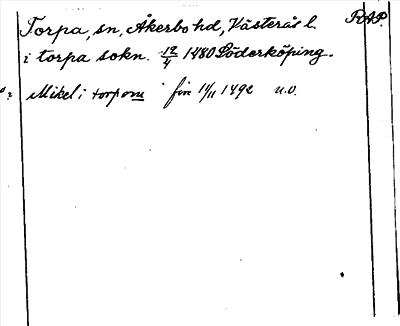 Torpa, sn, Åkerbo hd, Västerås l. RAP.
i torpa sokn. 12/4 1480 Söderköping.
Mikel i torpom 14/11 1492 u.o.